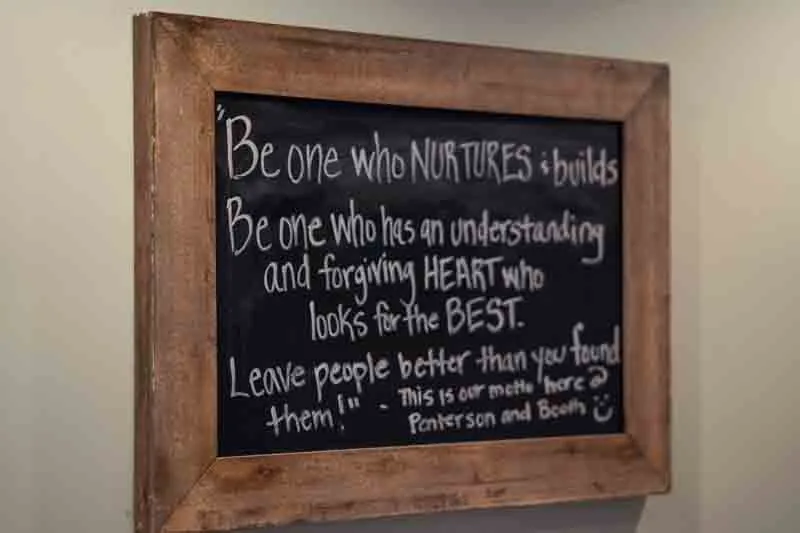 "Be one who NURTURES & builds
Be one who has an understanding
and forgiving HEART who
looks for the BEST.
Leave people better than you found
them!" - This is our motto here @
Penterson and Booth